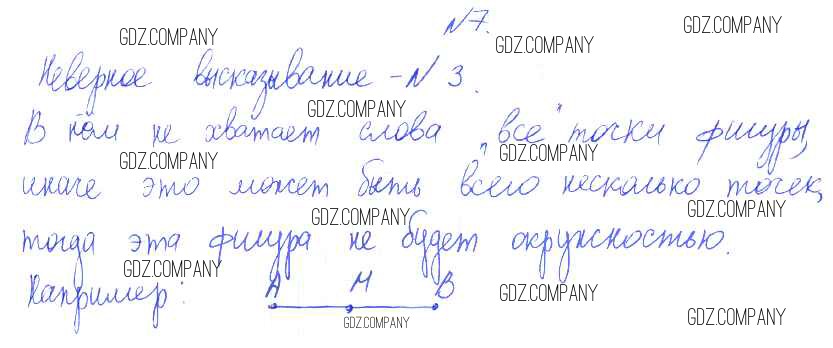 N7.
Неверное высказывание - N 3.
В нём не хватает слова „все" точки фигуры,
иначе это может быть всего несколько точек,
тогда эта фигура не будет окружностью.
Например: A M B
GDZ.COMPANY
GDZ.COMPANY
GDZ.COMPANY
GDZ.COMPANY
GDZ.COMPANY
GDZ.COMPANY
GDZ.COMPANY
GDZ.COMPANY
GDZ.COMPANY
GDZ.COMPANY
GDZ.COMPANY
GDZ.COMPANY